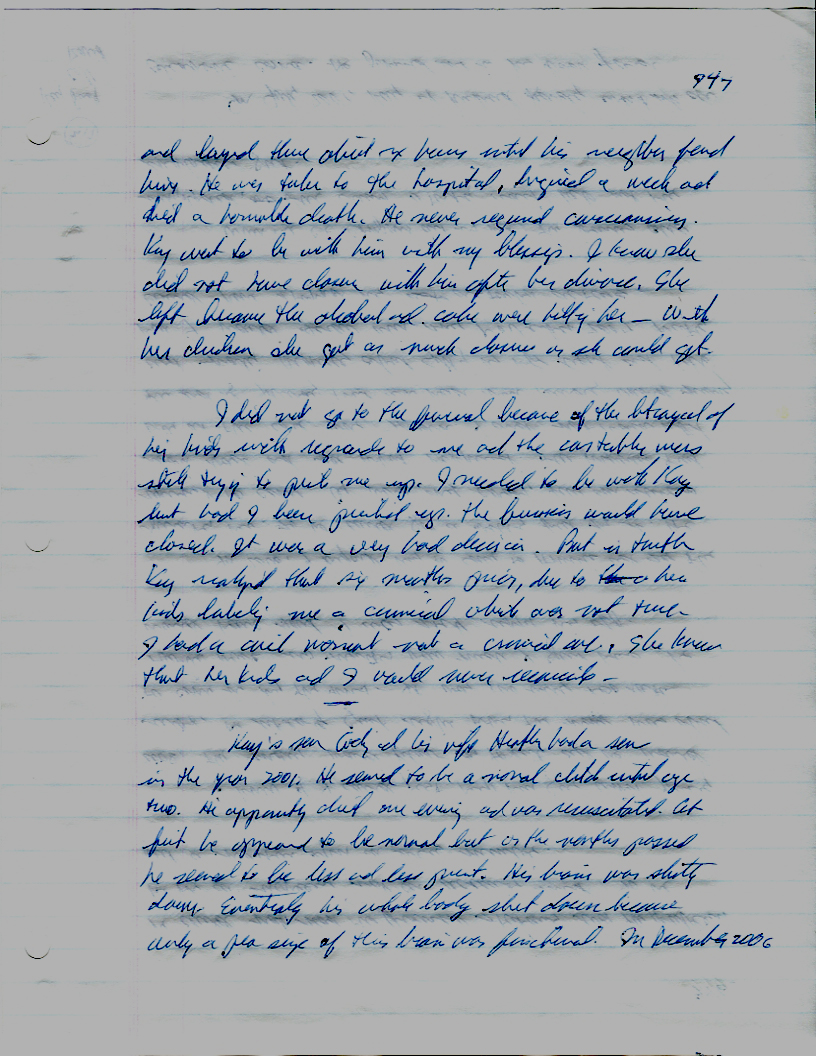 947
and layed there about six hours until his neighbor found
him. He was taken to the hospital, lingered a week and
died a horrible death. He never regained consciousness.
Kay went to be with him with my blessings. I know she
did not have closure with him after her divorce. She
left because the alcohol and were her — With
her children she got as much closure as she could get.
I did not go to the funeral because of the betrayal of
her kids with regards to me and the constables were
still trying to pick me up. I needed to be with Kay
but had I been picked up. the business would have
closed. It was a very bad decision. But in truth
Kay realized that six months prior, due to her
kids labeling me a criminal which was not true
I had a civil warrant not a criminal one. She knew
that her kids and I would never reconcile —
Kay's son Cody and his wife Heather had a son
in the year 2001. He seemed to be a normal child until age
two. He apparently died one evening and was resuscitated. At
first he appeared to be normal but as the months passed
he seemed to be less and less present. His brain was shutting
down. Eventually his whole body shut down because
only a pea size of his brain was functional. In December 2006